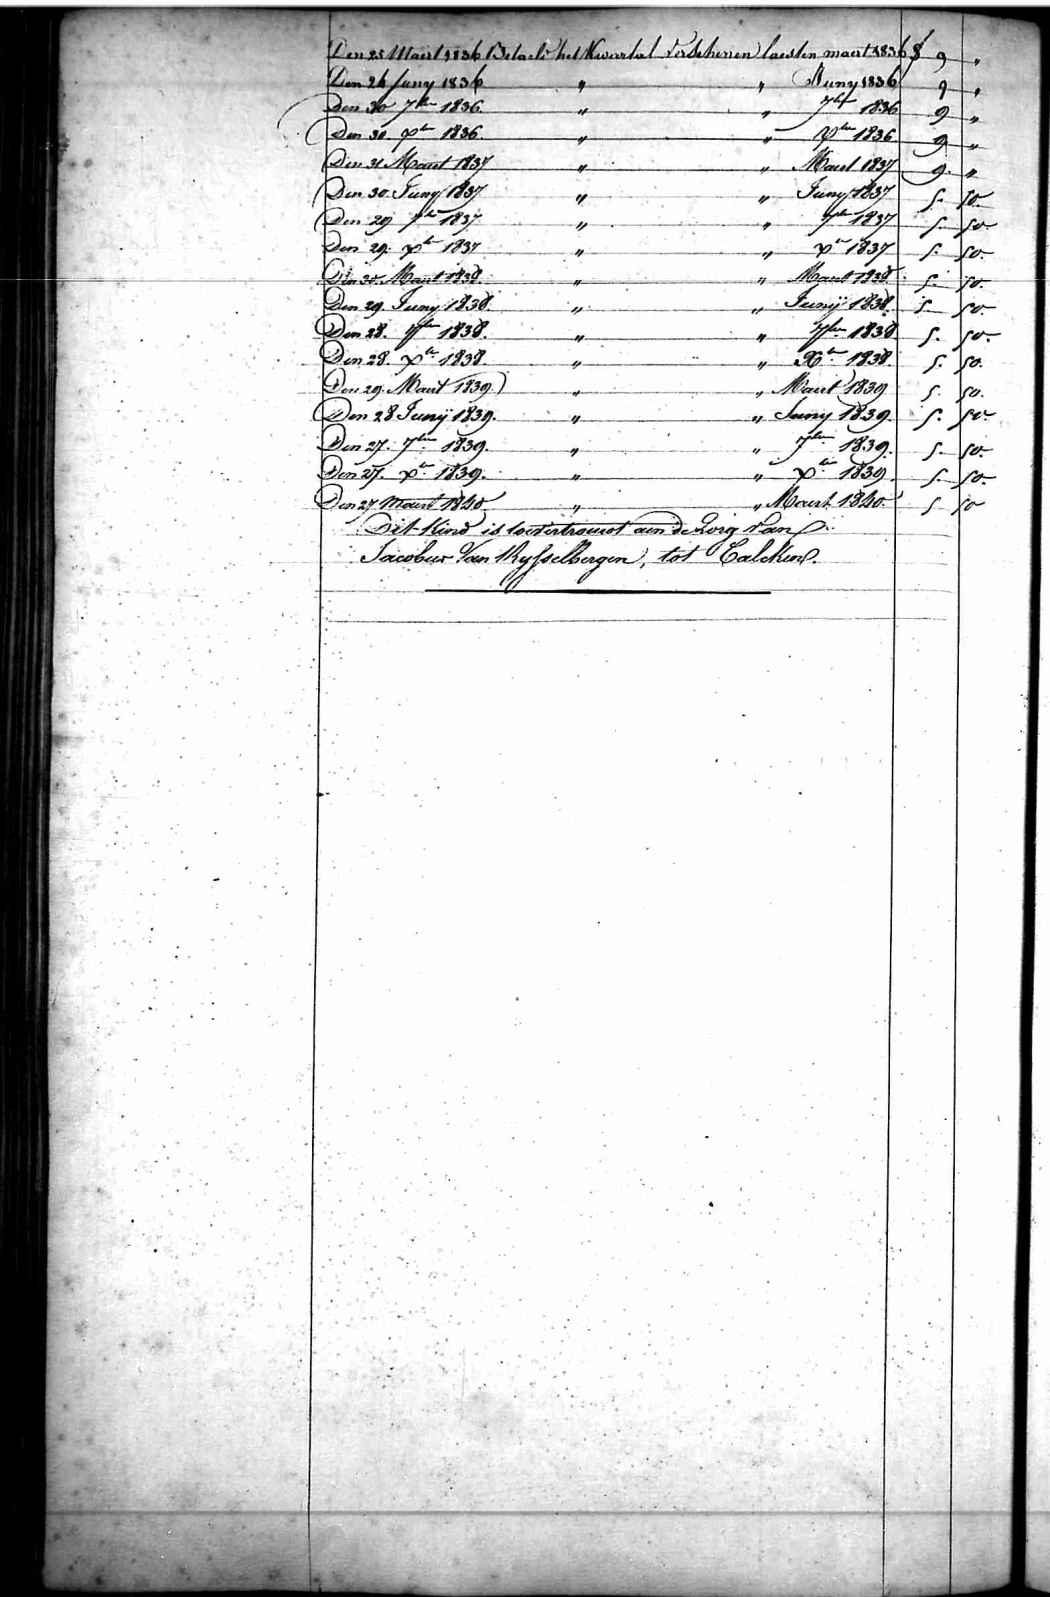 Den 25 Maert 1836 Betaelt het Kwartal verschenen laesten maert 1836 f 9 "
Den 24 Juny 1836 " " Juny 1836 9 "
Den 30 7ber 1836. " " 7ber 1836 9 "
Den 30. xber 1836. " " xber 1836 9 "
Den 31 Maert 1837 " " Maert 1837 9. "
Den 30. Juny 1837 " " Juny 1837 5. 50.
Den 29 7ber 1837. " " 7ber 1837 5. 50.
Den 29. xber 1837 " " xber 1837 5. 50.
Den 30. Maert 1838. " " Maert 1838. 5. 50.
Den 29. Juny 1838. " " Junÿ 1838. 5 50.
Den 28. 7ber 1838. " " 7ber 1838 5. 50.
Den 28. xber 1838 " " Xber 1838. 5. 50.
Den 29. Maert 1839. " " Maert 1839 5. 50.
Den 28 Junÿ 1839. " " Juny 1839. 5. 50.
Den 27. 7ber 1839. " " 7ber 1839. 5. 50.
Den 27. xber 1839. " " xber 1839 5. 50.
Den 27 Maert 1840 " " Maert 1840. 5 50
Dit Kind is toevertrouwt aen de Zorg van
Jacobus Van Rysselbergen, tot Calcken.